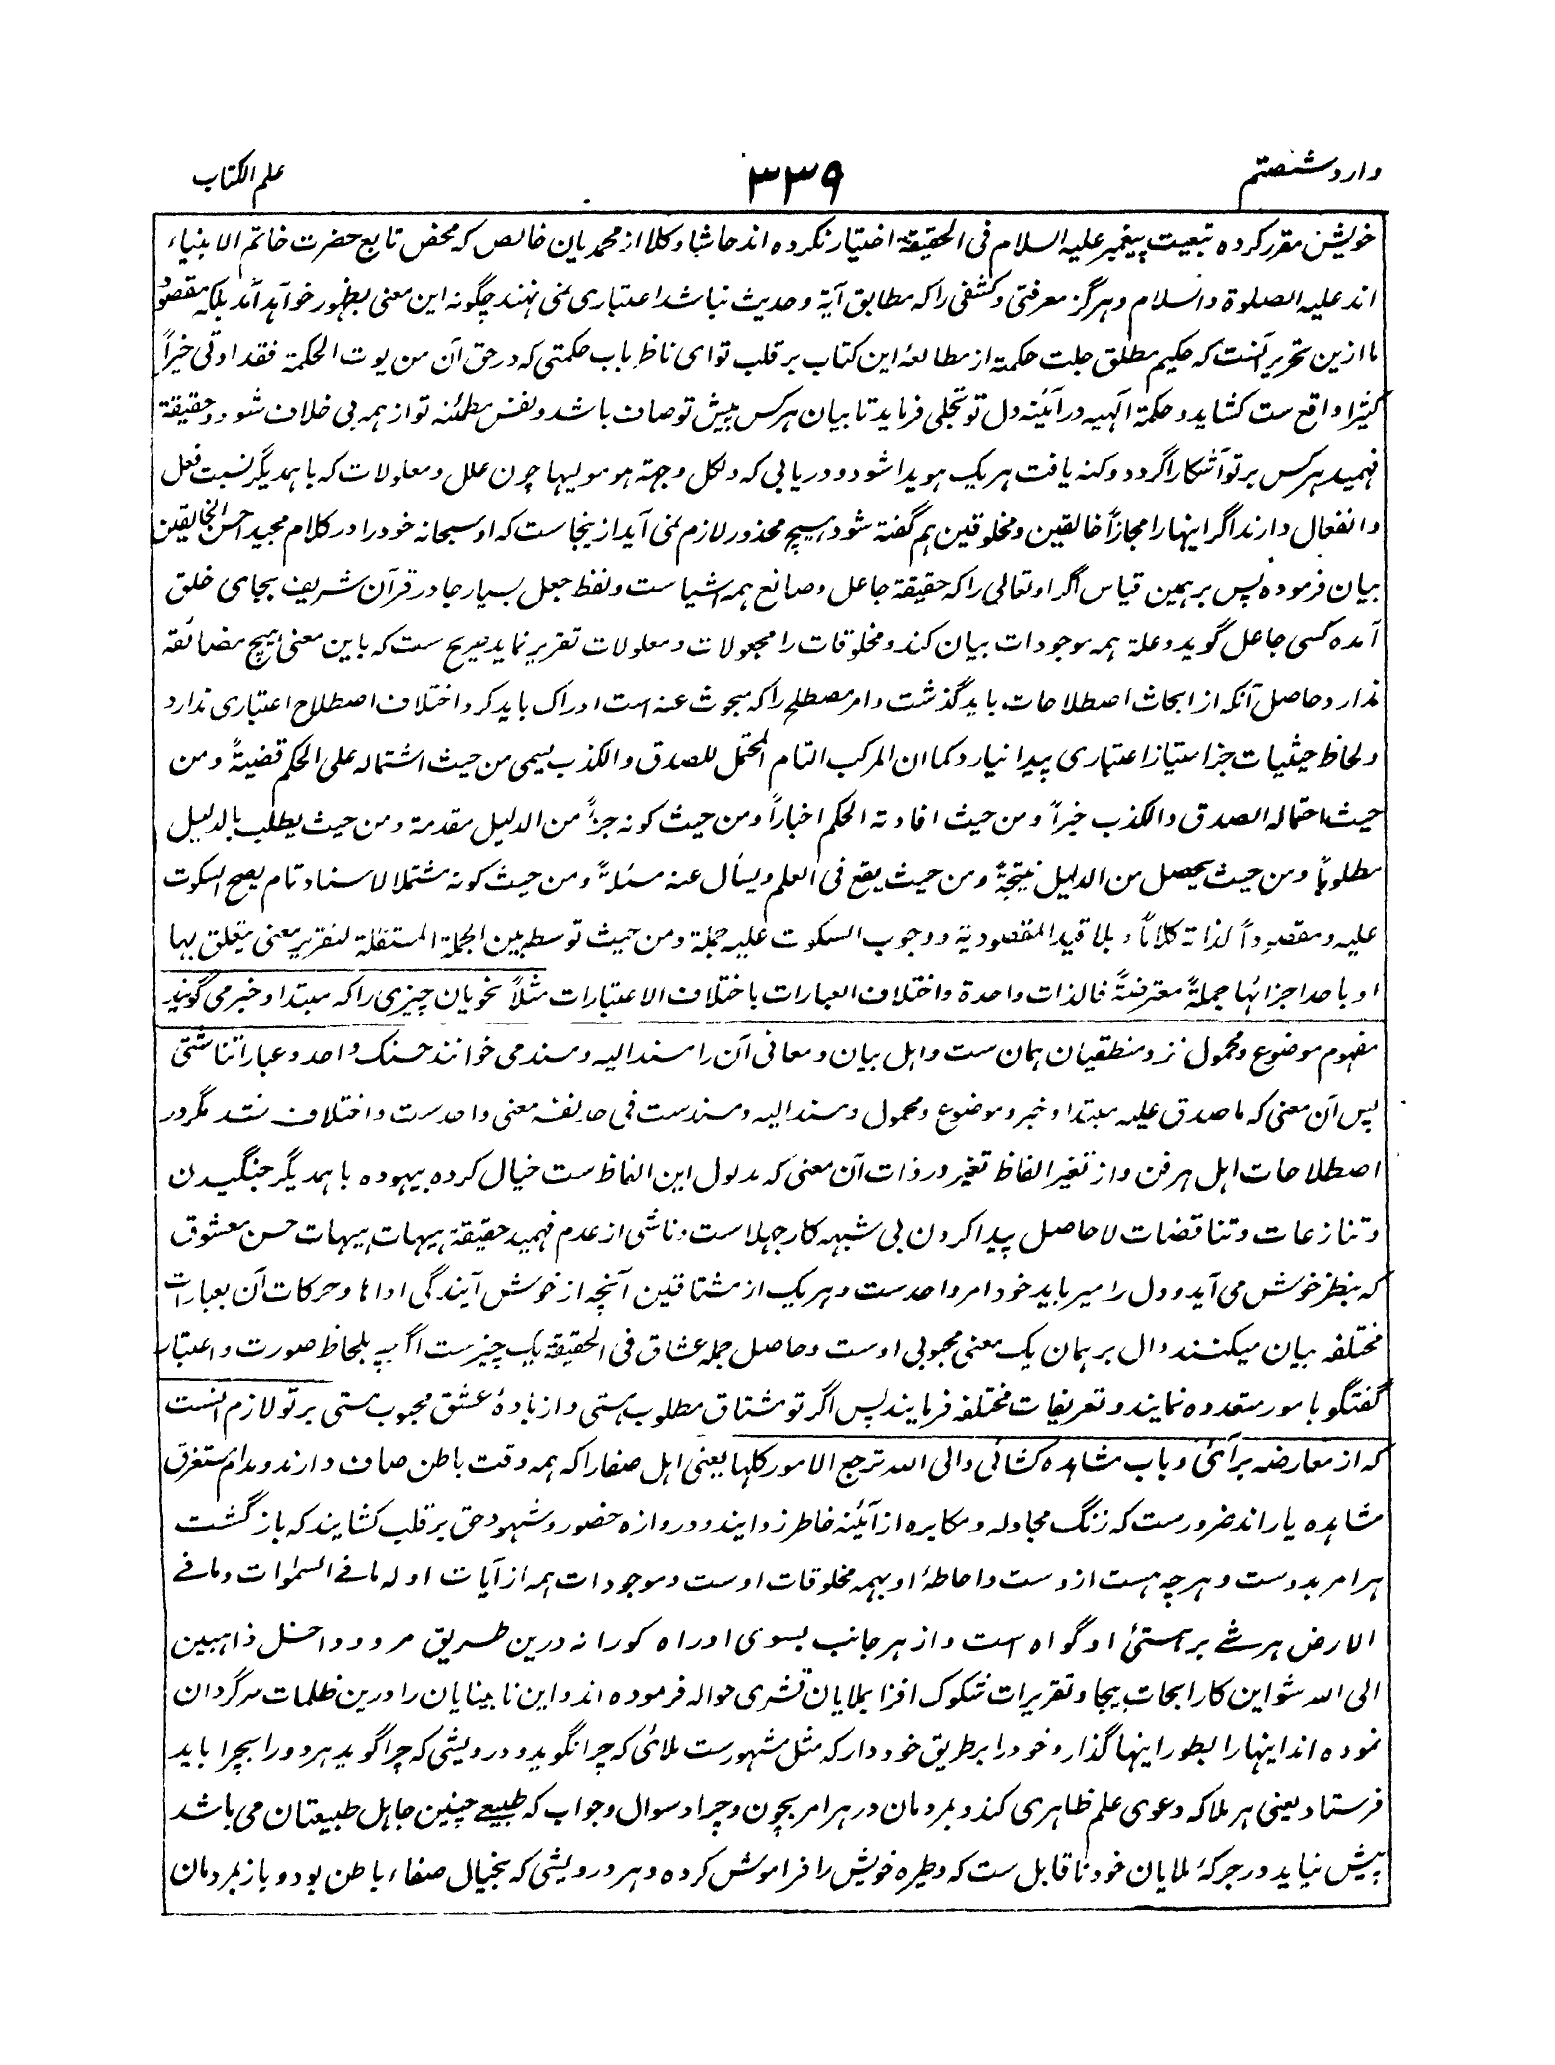 وارد شصتم
۳۳۹
علم الکتاب
خویش مقرر کرده تبعیت پیغمبر علیه السلام فی الحقیقة اختیار نکرده اند حاشا و کلا از محمدیان خالص که محض تابع حضرت خاتم الانبیاء
اند علیه الصلوة والسلام و هرگز معرفتی و کشفی را که مطابق آیة و حدیث نباشد اعتباری نمی نهند چگونه این معنی بظهور خواهد آمد بلکه مقصود
ما ازین تحریر آنست که حکیم مطلق جلت حکمته از مطالعۀ این کتاب بر قلب تو ای ناظر باب حکمتی که در حق آن من یوت الحکمة فقد اوتی خیراً
کثیرا واقع ست کشاید و حکمة الٓهیه در آئینه دل تو تجلی فرماید تا بیان هرکس پیش تو صاف باشد و نفس مطمئنه تو از همه بی خلاف شود و حقیقة
فهمید هرکس بر تو آشکارا گردد و کنه یافت هر یک هویدا شود و دریابی که ولکل وجهة هو مولیها چون علل و معلولات که با همدیگر نسبت فعل
و انفعال دارند اگر اینها را مجازاً خالقین و مخلوقین هم گفته شود هیچ محذور لازم نمی آید ازینجاست که او سبحانه خود را در کلام مجید احسن الخالقین
بیان فرموده پس بر همین قیاس اگر او تعالی را که حقیقة جاعل و صانع همه اشیا ست و لفظ جعل بسیار جا در قرآن شریف بجای خلق
آمده کسی جاعل گوید و علة همه موجودات بیان کند و مخلوقات را مجعولات و معلولات تقریر نماید صریح ست که باین معنی هیچ مضائقه
ندارد و حاصل آنکه از ابحاث اصطلاحات باید گذشت و امر مصطلح را که مبحوث عنه است ادراک باید کرد و اختلاف اصطلاح اعتباری ندارد
و لحاظ حیثیات جز امتیاز اعتباری پیدا نیارد کما ان المرکب التام المحتمل للصدق والکذب یسمی من حیث اشتماله علی الحکم قضیةً و من
حیث احتماله الصدق والکذب خبراً و من حیث افادته الحکم اخباراً و من حیث کونه جزأً من الدلیل مقدمة و من حیث یطلب بالدلیل
مطلوباً و من حیث یحصل من الدلیل نتیجةً و من حیث یقع فی العلم و یسأل عنه مسئلةً و من حیث کونه مشتملا لاسناد تام یصح السکوت
علیه و مقصوداً لذاته کلاماً و بلا قید المقصودیة و وجوب السکوت علیه جملة و من حیث توسطه بین الجملة المستقلة لتقریر معنی یتعلق بها
او باحد اجزائها جملةً معترضةً فالذات واحدة و اختلاف العبارات باختلاف الاعتبارات مثلاً نحویان چیزی را که مبتدا و خبر می گویند
مفهوم موضوع و محمول نزد منطقیان همان ست و اهل بیان و معانی آن را مسند الیه و مسند می خوانند حسنک واحد و عباراتنا شتی
پس آن معنی که ما صدق علیه مبتدا و خبر و موضوع و محمول و مسند الیه و مسندست فی حد نفسه معنی واحدست و اختلاف نشد مگر در
اصطلاحات اهل هر فن و از تغیر الفاظ تغیر در ذات آن معنی که مدلول این الفاظ ست خیال کرده بیهوده با همدیگر جنگیدن
و تنازعات و تناقضات لاحاصل پیدا کردن بی شبهه کار جهلاست و ناشی از عدم فهمید حقیقة هیهات هیهات حسن معشوق
که بنظر خوش می آید و دل را میرباید خود امر واحدست و هر یک از مشتاقین آنچه از خوش آیندگی اداها و حرکات آن بعبارات
مختلفه بیان میکنند دال بر همان یک معنی محبوبی اوست و حاصل جمله عشاق فی الحقیقة یک چیزست اگرچه بلحاظ صورت و اعتبار
گفتگو با مور متعدده نمایند و تعریفات مختلفه فرمایند پس اگر تو مشتاق مطلوب هستی و از بادۀ عشق محبوب مستی بر تو لازم انست
که از معارضه برآئی و باب مشاهده کشائی والی الله ترجع الامور کلها یعنی اهل صفا را که همه وقت باطن صاف دارند و مدام مستغرق
مشاهده یار اند ضرورست که زنگ مجادله و مکابره از آئینه خاطر زدایند و دروازه حضور و شهود حق بر قلب کشایند که بازگشت
هر امر بدوست و هرچه هست ازوست و احاطۀ او بهمه مخلوقات اوست و موجودات همه از آیات او له ما فے السمٰوات و ما فے
الارض هر شے بر هستئ او گواه است و از هر جانب بسوی او راه کورانه درین طریق مرو و داخل ذاهبین
الی الله شو این کار ابحاث بیجا و تقریرات شکوک افزا بملایان قشری حواله فرموده اند و این نابینایان را درین ظلمات سرگردان
نموده اند اینها را بطور اینها گذار و خود را بطریق خود دار که مثل مشهورست ملائی که چرا نگوید و درویشی که چرا گوید هر دو را بچرا باید
فرستاد یعنی هر ملا که دعوی علم ظاهری کند و بمردمان در هر امر بچون و چرا و سوال و جواب که طبیعے چنین جاهل طبیعتان می باشد
پیش نیاید در جرگۀ ملایان خود ناقابل ست که وطیره خویش را فراموش کرده و هر درویشی که بخیال صفاء باطن بود و باز بمردمان